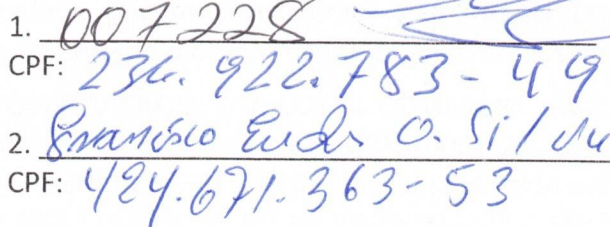 1. 007228
CPF: 234.922.783-49
2. Francisco Euder O. Silva
CPF: 424.671.363-53